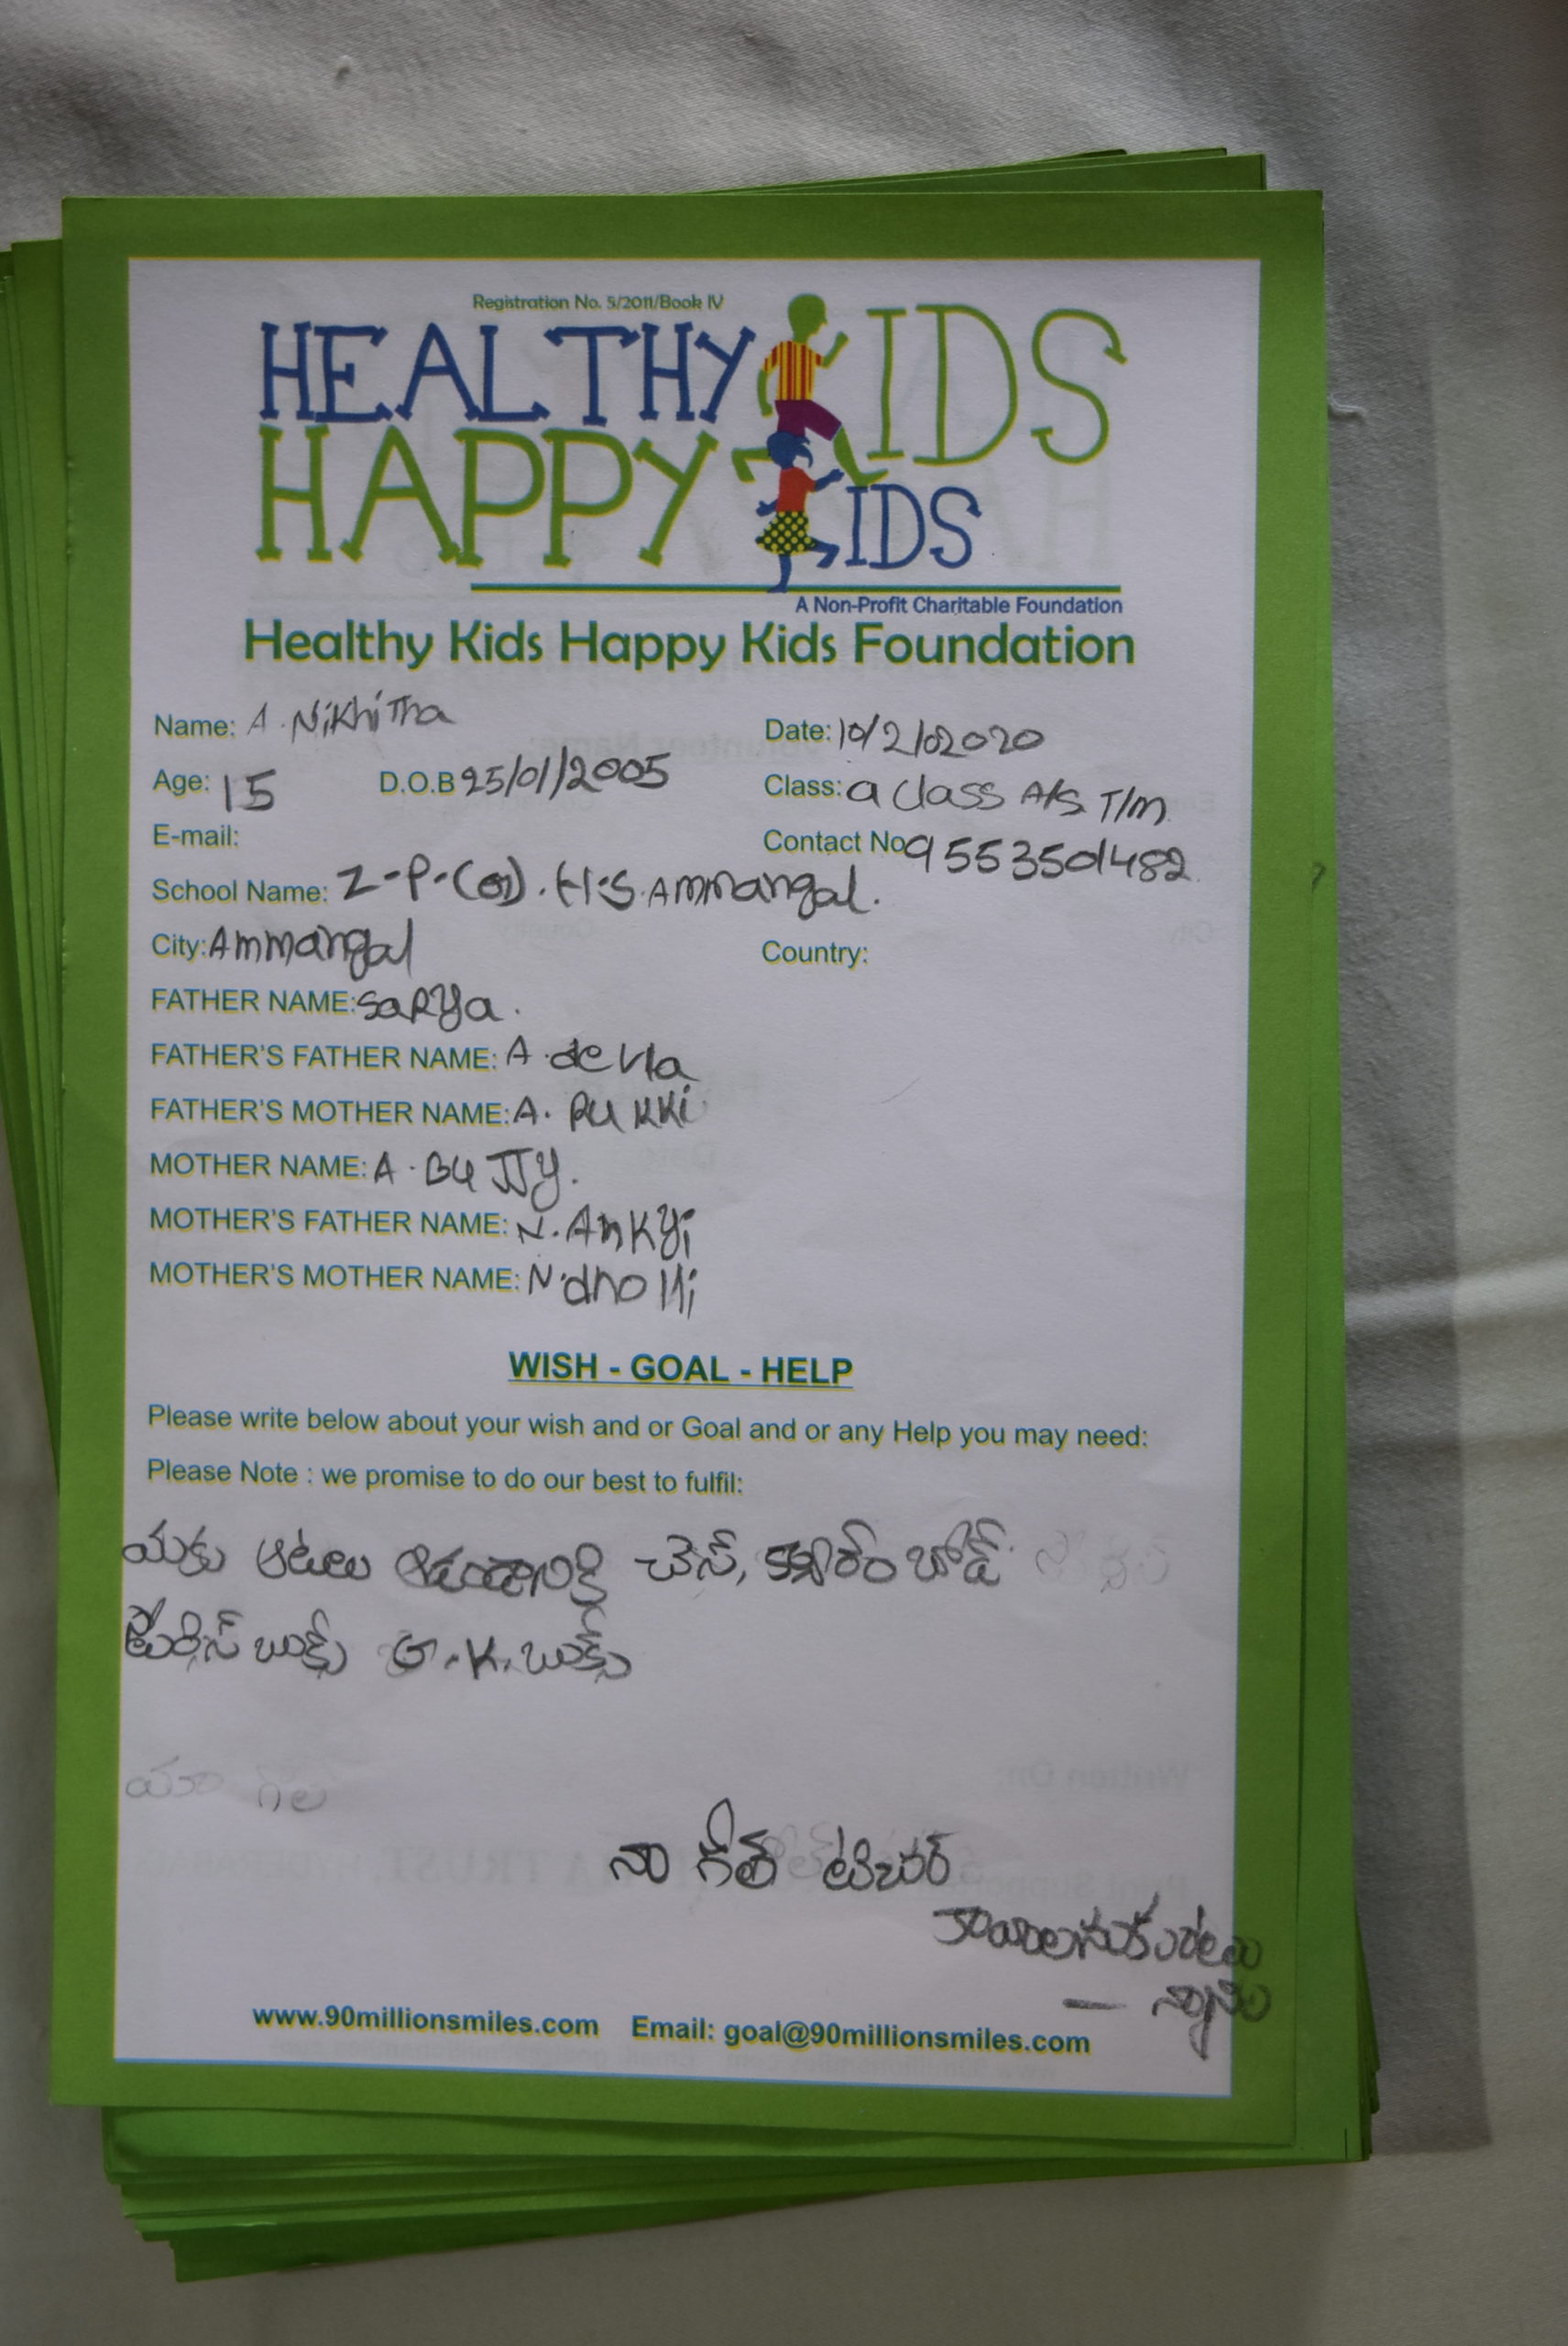 Registration No. 5/2011/Book IV
HEALTHY KIDS
HAPPY KIDS
A Non-Profit Charitable Foundation
Healthy Kids Happy Kids Foundation
Name: A. Nikhitha Date: 10/2/02020
Age: 15 D.O.B 25/01/2005 Class: 9 class A/S T/m
E-mail: Contact No 9553501482
School Name: Z-P-(G). H.S. Ammangal.
City: Ammangal Country:
FATHER NAME: Sarya.
FATHER'S FATHER NAME: A. devla
FATHER'S MOTHER NAME: A. Rukki
MOTHER NAME: A. BuJJy.
MOTHER'S FATHER NAME: N. Ankyi
MOTHER'S MOTHER NAME: N. dholli
WISH - GOAL - HELP
Please write below about your wish and or Goal and or any Help you may need:
Please Note : we promise to do our best to fulfil:
మకు ఆటలు ఆడడానికి చెస్, క్యారం బోర్డ్
బుక్స్ G.K. బుక్స్
నా గోల్ టీచర్
www.90millionsmiles.com Email: goal@90millionsmiles.com